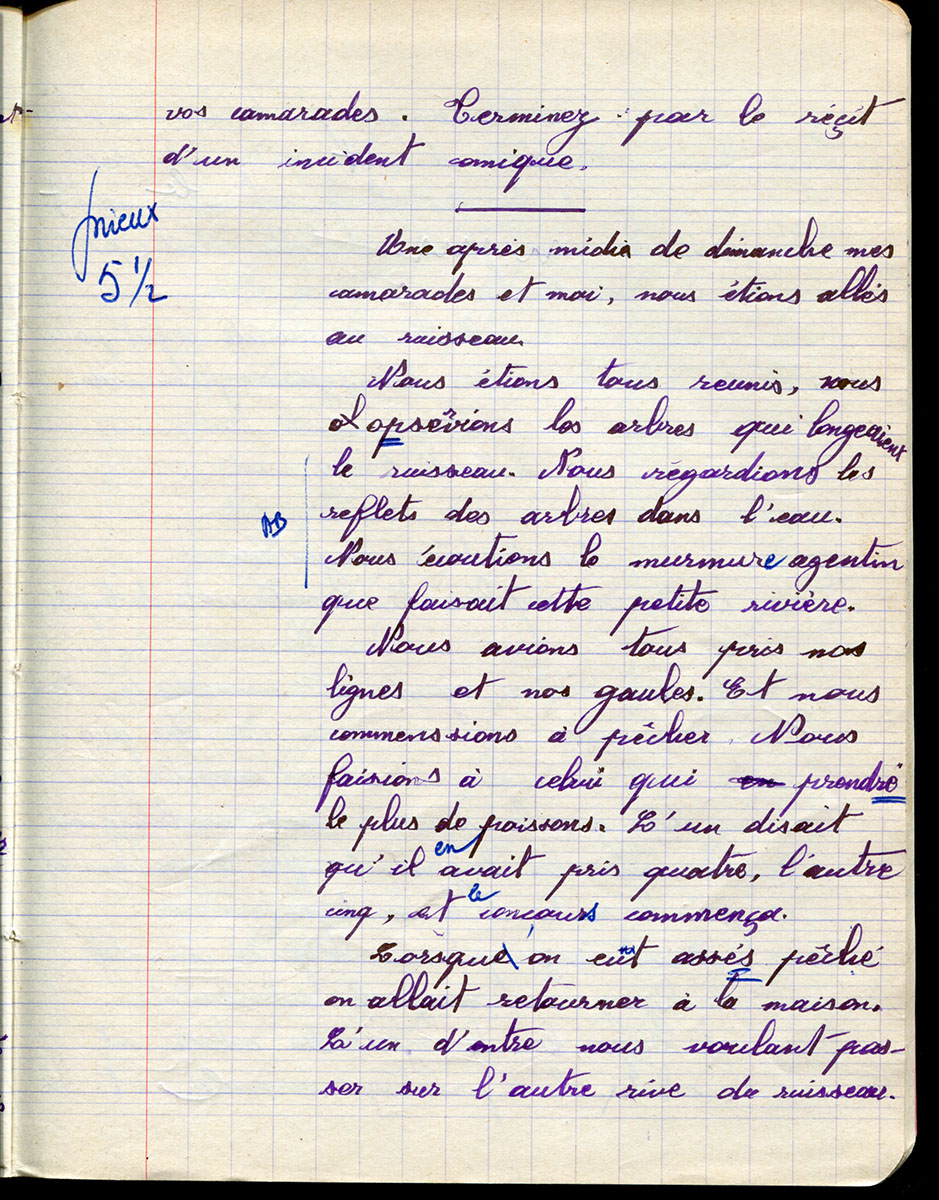 vos camarades. Terminez par le récit
d'un incident comique.
mieux
5 1/2
Une après midi de dimanche mes
camarades et moi, nous étions allés
au ruisseau.
Nous étions tous reunis, nous
opsérvions les arbres qui longeaient
le ruisseau. Nous regardions les
reflets des arbres dans l'eau.
AB
Nous écoutions le murmure agentin
que faisait cette petite rivière.
Nous avions tous pris nos
lignes et nos gaules. Et nous
commenssions à pêcher. Nous
faisions à celui qui prendré
le plus de poissons. L'un disait
qu'il en avait pris quatre, l'autre
cinq, et le concours commença.
Lorsqu'on eût assés pêché
on allait retourner à la maison.
L'un d'entre nous voulant pas-
ser sur l'autre rive du ruisseau.